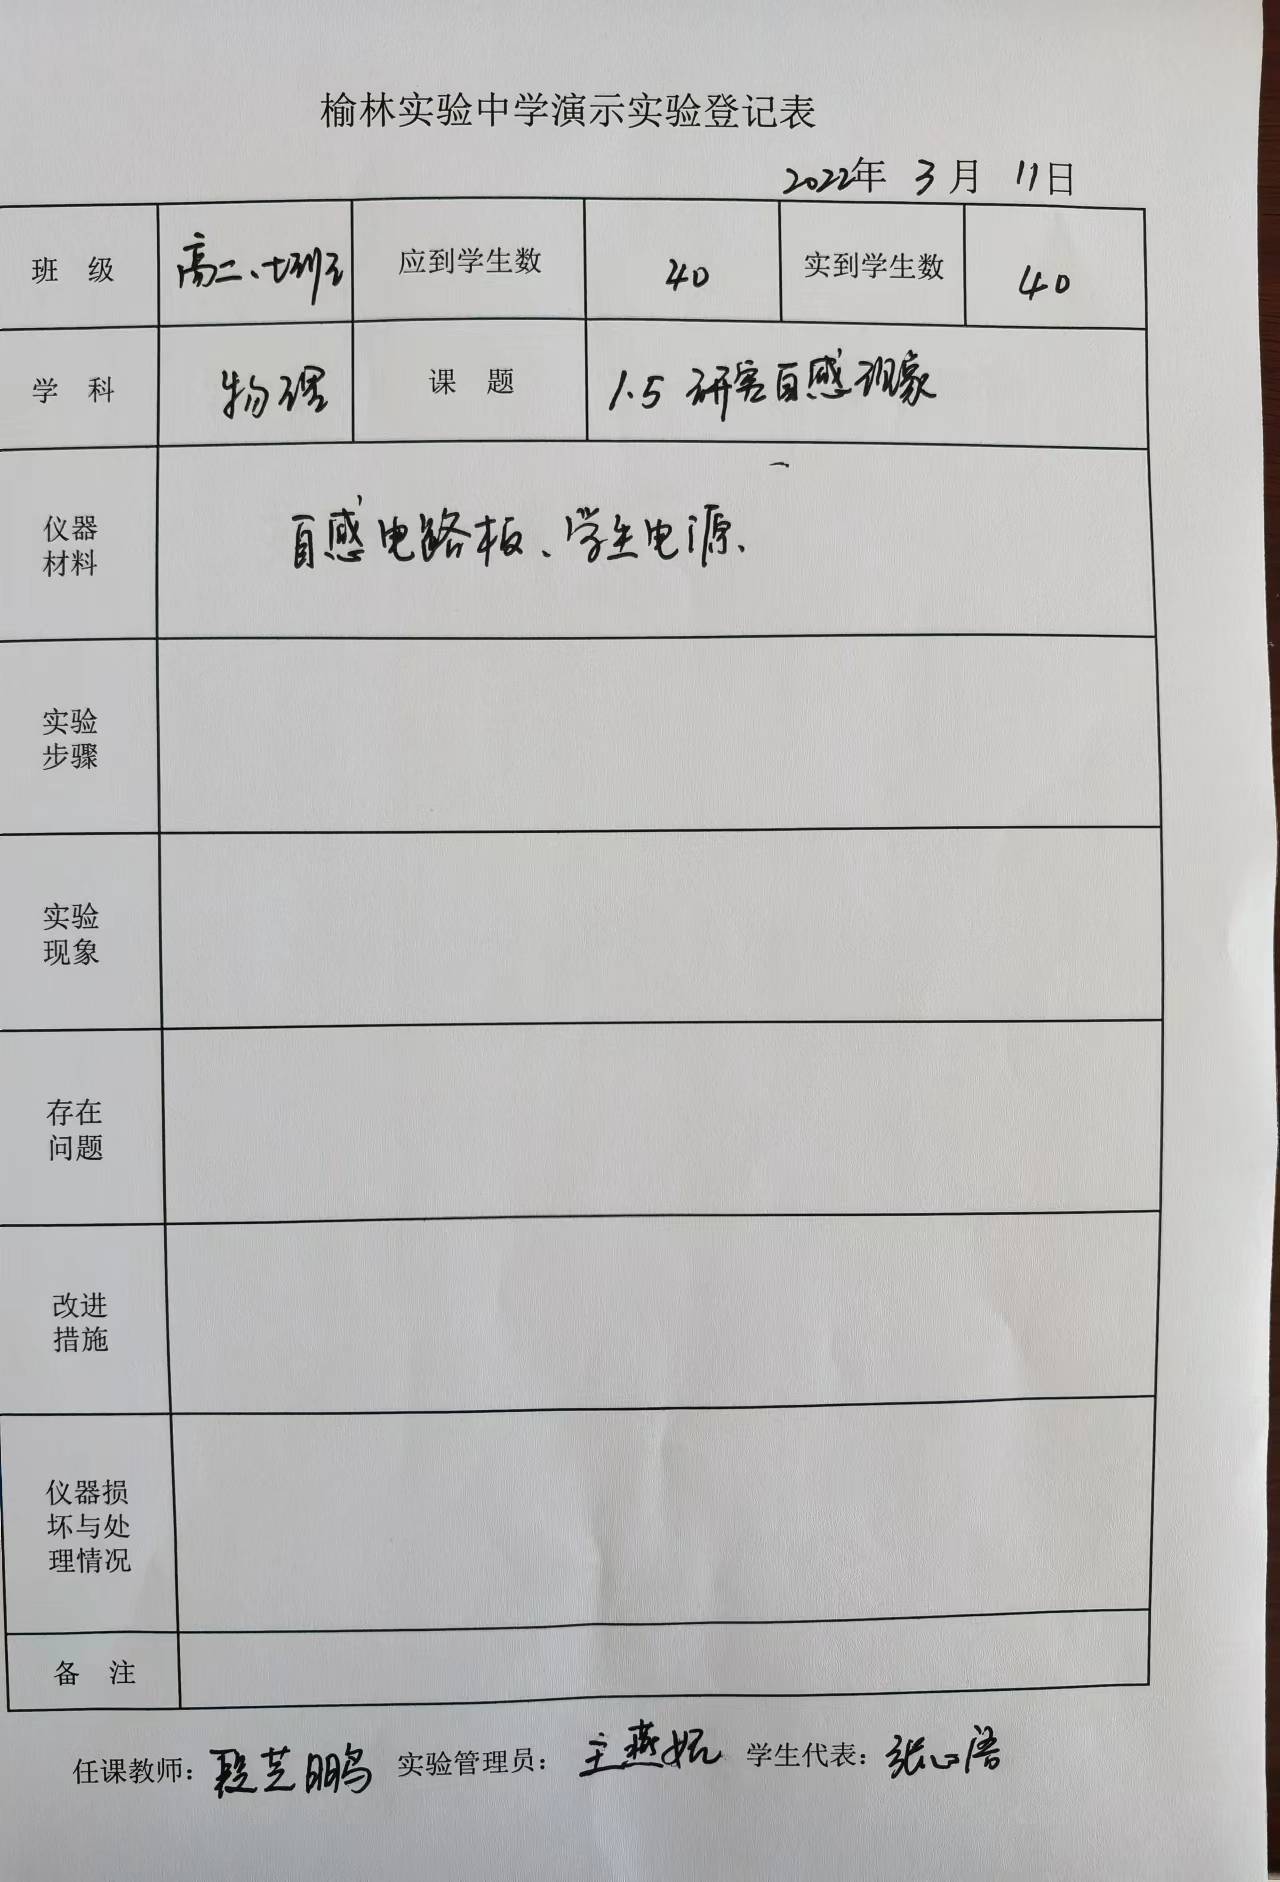 榆林实验中学演示实验登记表
2022年 3月 11日
班 级 高二、七班 应到学生数 40 实到学生数 40
学 科 物理 课 题 1.5 研究自感现象
仪器
材料
自感电路板、学生电源、
实验
步骤
实验
现象
存在
问题
改进
措施
仪器损
坏与处
理情况
备 注
任课教师：段芝鹏 实验管理员：王燕妮 学生代表：张心语